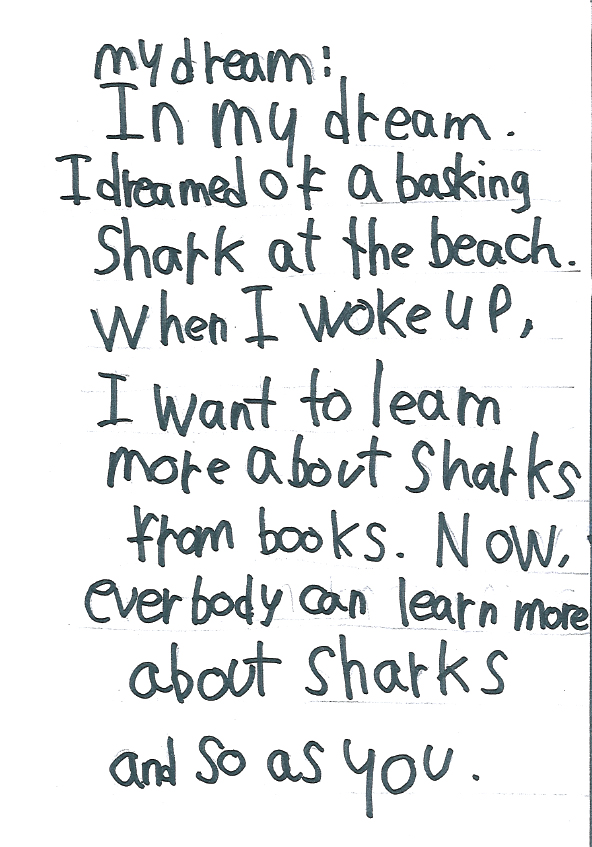 my dream:
In my dream.
I dreamed of a basking
Shark at the beach.
When I woke up,
I want to learn
more about Sharks
from books. Now,
everbody can learn more
about Sharks
and so as you.